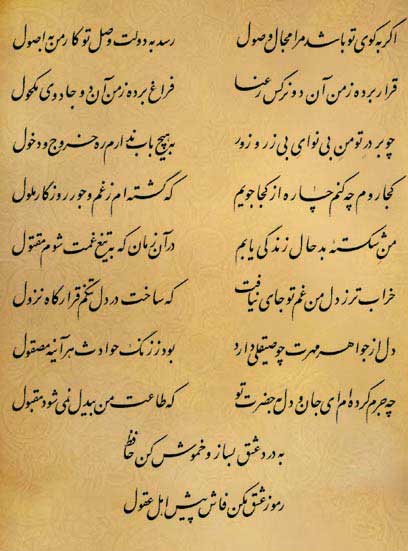 اگر به کوی تو باشد مرا مجال وصول رسد به دولت وصل تو کار من به اصول
قرار برده ز من آن دو نرگس رعنا فراغ برده ز من آن دو جادوی مکحول
چو بر در تو من بی نوای بی زر و زور به هیچ باب ندارم ره خروج و دخول
کجا روم چه کنم چاره از کجا جویم که گشته ام ز غم و جور روزگار ملول
من شکسته بدحال زندگی یابم در آن زمان که به تیغ غمت شوم مقتول
خراب تر ز دل من غم تو جای نیافت که ساخت در دل تنگم قرارگاه نزول
دل از جواهر مهرت چو صیقلی دارد بود ز زنگ حوادث هر آینه مصقول
چه جرم کرده ام ای جان و دل به حضرت تو که طاعت من بیدل نمی شود مقبول
به درد عشق بساز و خموش کن حافظ
رموز عشق مکن فاش پیش اهل عقول